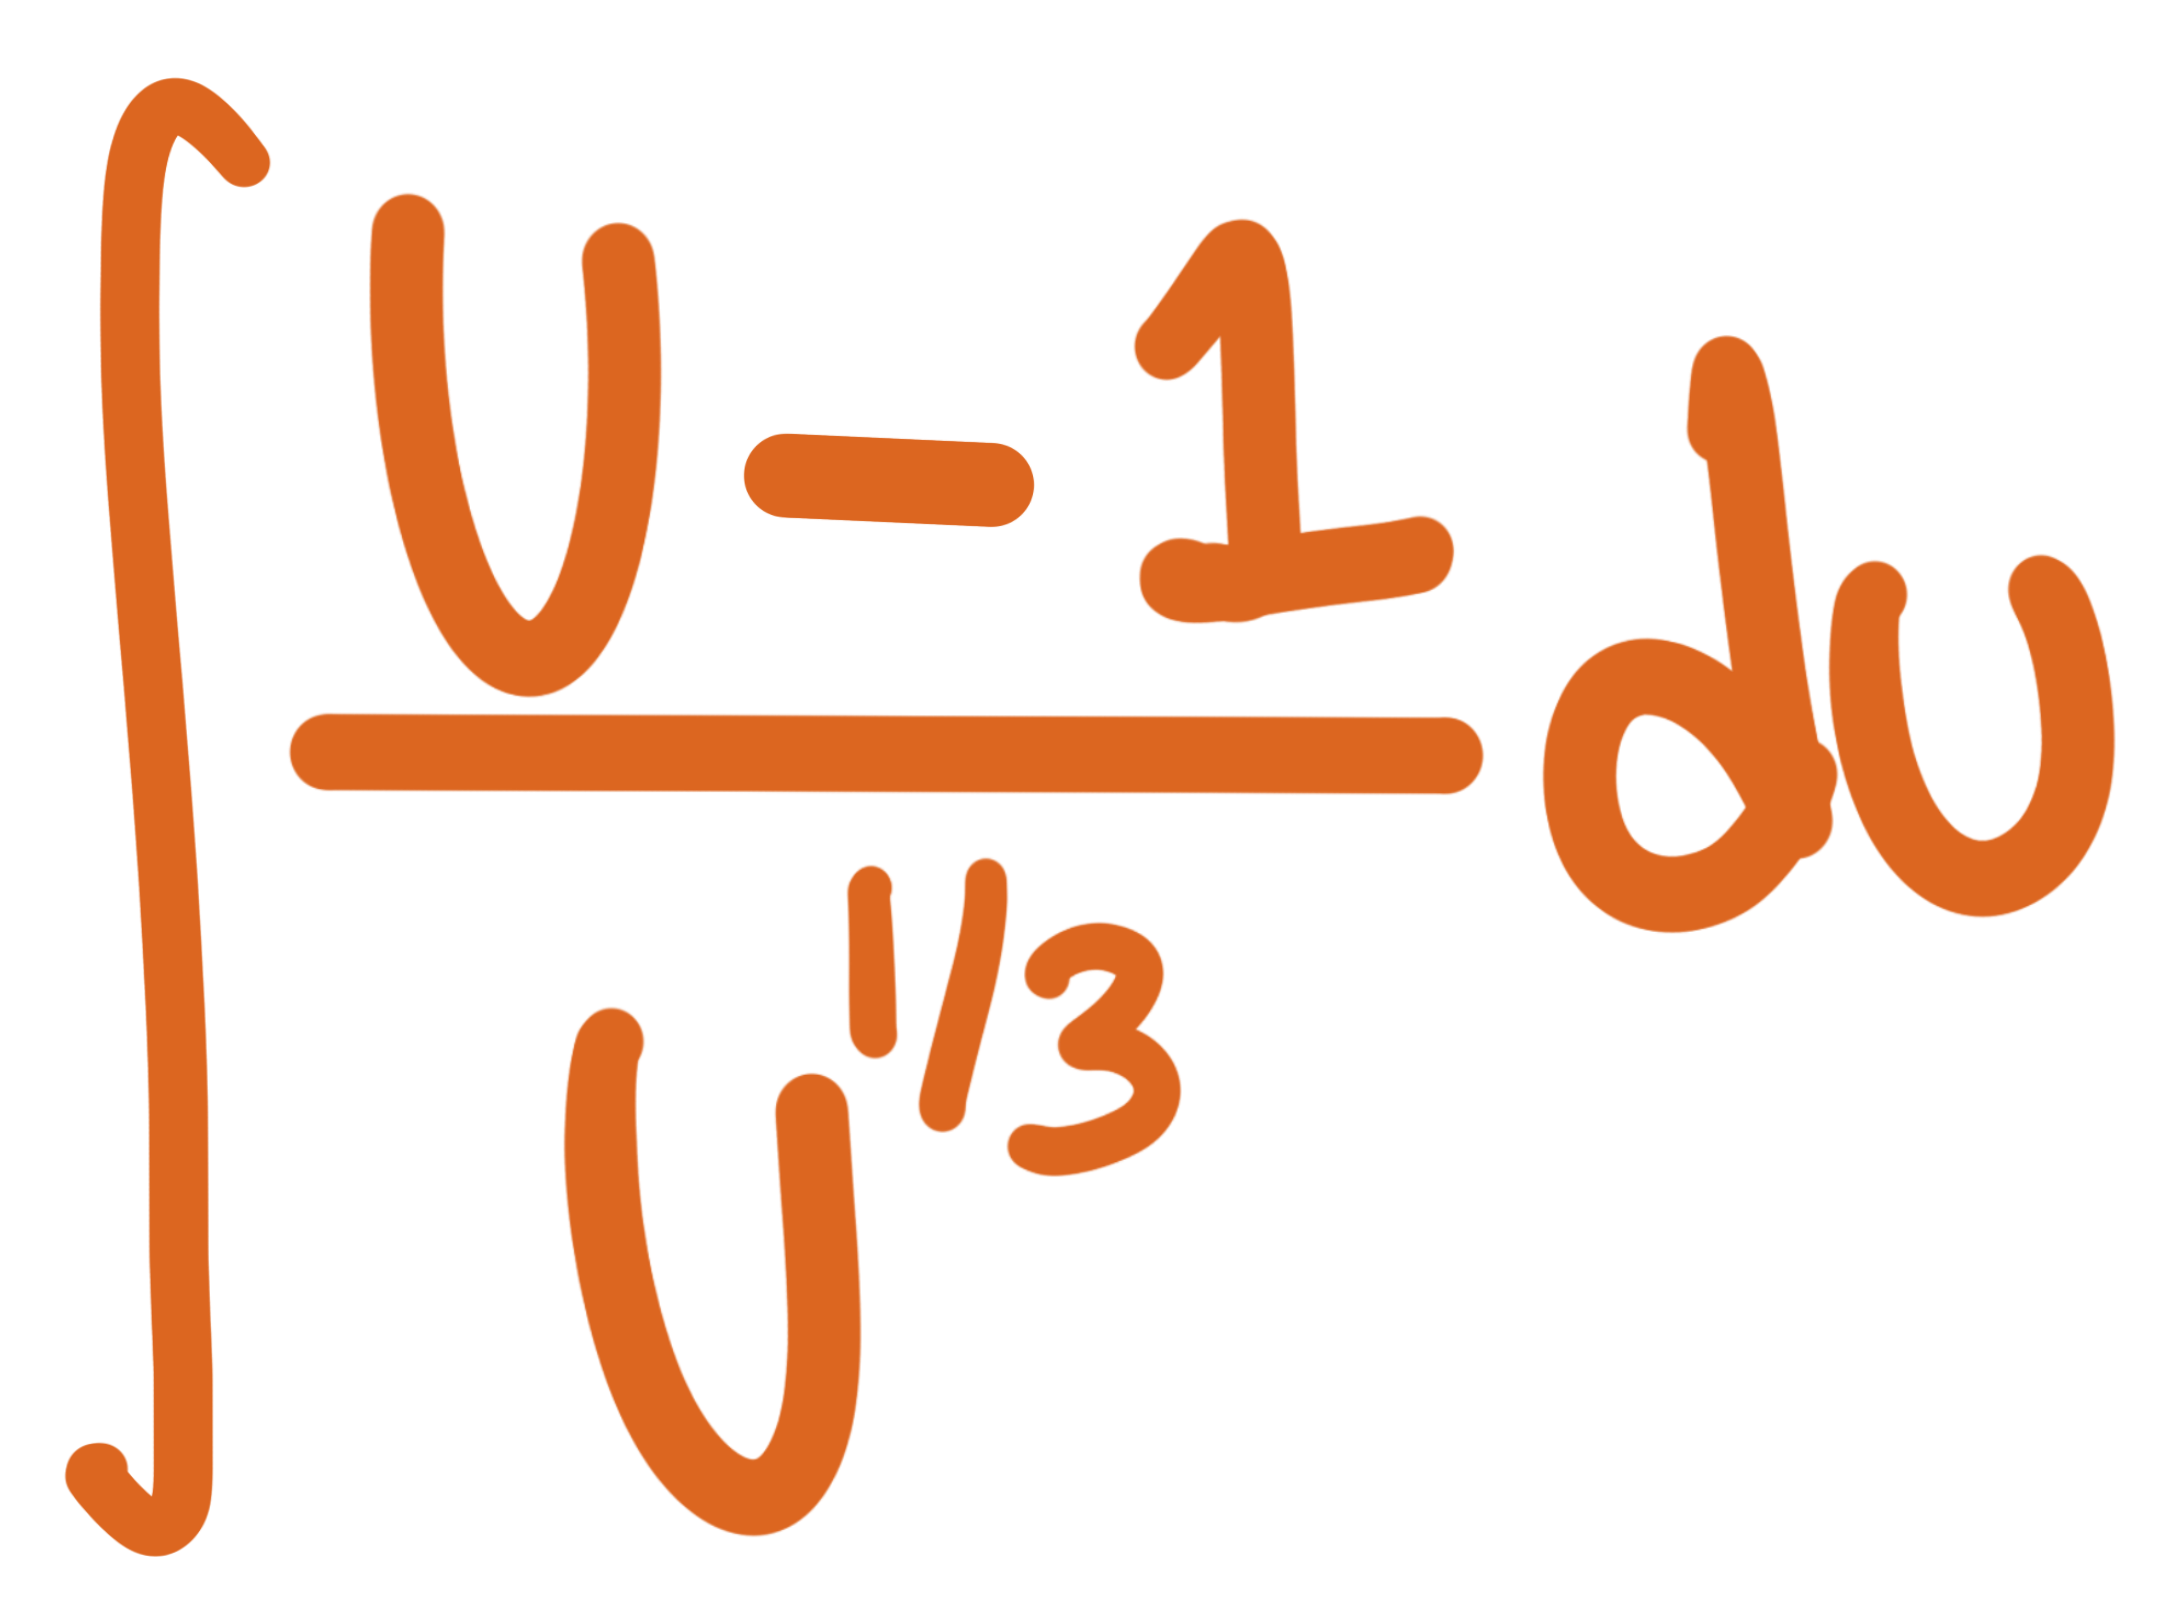 ∫ (U-1)/(U^{1/3}) du